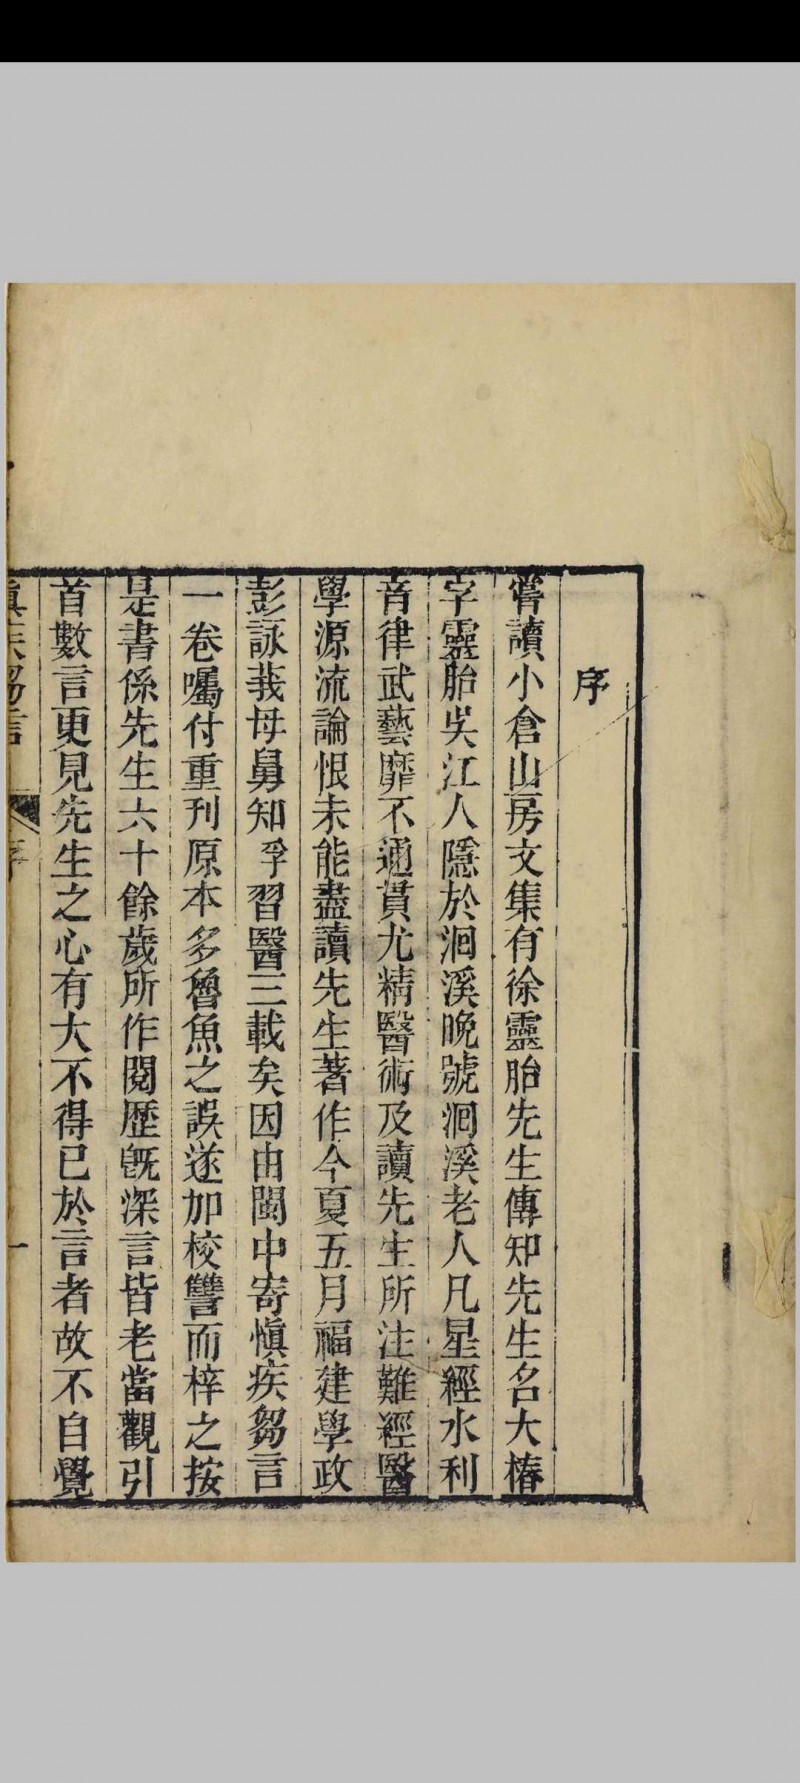 序
嘗讀小倉山房文集有徐靈胎先生傳知先生名大椿
字靈胎吳江人隱於洄溪晚號洄溪老人凡星經水利
音律武藝靡不通貫尤精醫術及讀先生所注難經醫
學源流論恨未能盡讀先生著作今夏五月福建學政
彭詠莪母舅知孚習醫三載矣因由閩中寄愼疾芻言
一卷囑付重刊原本多魯魚之誤遂加校讐而梓之按
是書係先生六十餘歲所作閱歷旣深言皆老當觀引
首數言更見先生之心有大不得已於言者故不自覺
愼疾芻言 序 一